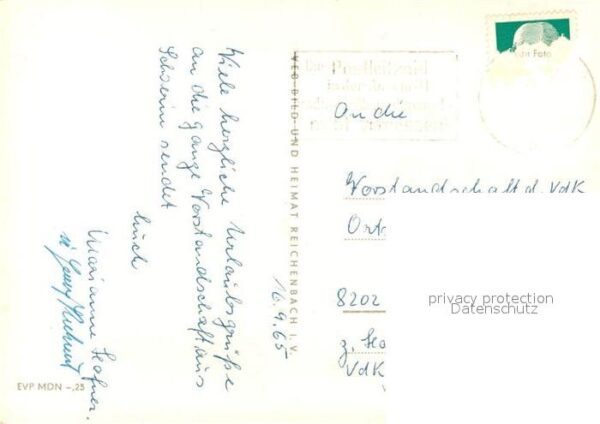 Viele herzliche Urlaubsgrüße
an die ganze Vorstandschaft aus
Schwerin sendet
Euch
Marianne Hafner
u.
EVP MDN -,25
VEB BILD UND HEIMAT REICHENBACH I. V.
16.9.65
Postleitzahl
An die
Vorstandschaft d. VdK
Ort
8202
z. Ha
VdK
Ihr Foto
privacy protection
Datenschutz